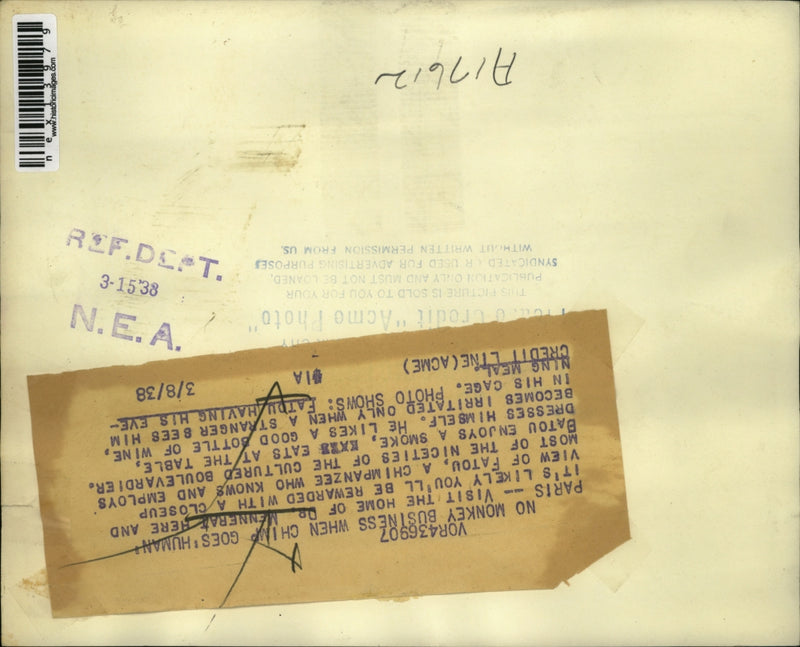 nex13979
www.historicimages.com
A17612
REF.DEPT.
3-15'38
N.E.A.
"Acme Photo"
THIS PICTURE IS SOLD TO YOU FOR YOUR
PUBLICATION ONLY AND MUST NOT BE LOANED,
SYNDICATED OR USED FOR ADVERTISING PURPOSES
WITHOUT WRITTEN PERMISSION FROM US.
VOR436907
NO MONKEY BUSINESS WHEN CHIMP GOES'HUMAN'
PARIS -- VISIT THE HOME OF DR MENNERAT HERE AND
IT'S LIKELY YOU'LL BE REWARDED WITH A CLOSEUP
VIEW OF FATOU, A CHIMPANZEE WHO KNOWS AND EMPLOYS
MOST OF THE NICETIES OF THE CULTURED BOULEVARDIER.
BATOU ENJOYS A SMOKE, EATS AT THE TABLE,
DRESSES HIMSELF. HE LIKES A GOOD BOTTLE OF WINE,
BECOMES IRRITATED ONLY WHEN A STRANGER SEES HIM
IN HIS CAGE. PHOTO SHOWS: FATOU HAVING HIS EVE-
NING MEAL.
CREDIT LINE(ACME) 3/8/38